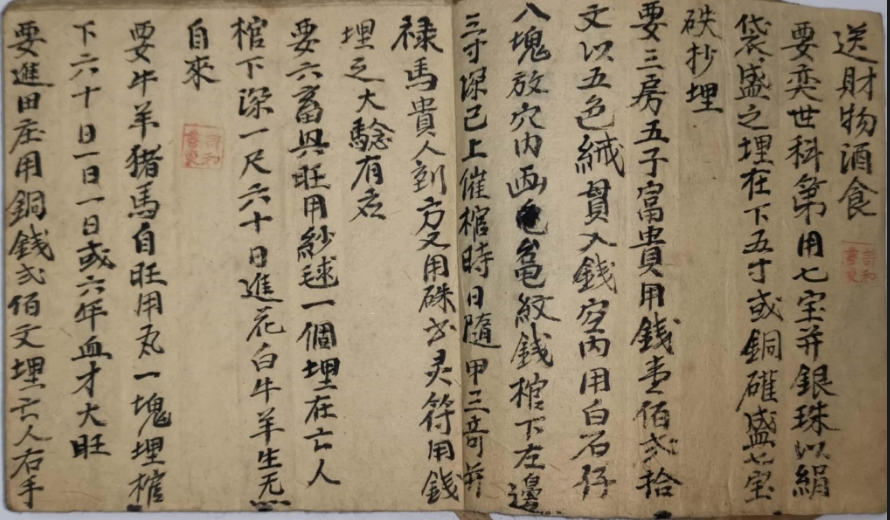 送財物酒食
要奕世科第用七宝并銀珠以絹
袋盛之埋在下五寸或銅礶盛七宝
砆抄埋
要三房五子富貴用錢壹佰弍拾
文以五色絨貫入錢空內用白石仔
八塊放穴內画龟紋錢棺下左邊
三寸深已上催棺時日隨甲三奇并
禄馬貴人到方又用硃書灵符用錢
埋之大驗有在
要六畜興旺用紗毬一個埋在亡人
棺下深一尺六十日進花白牛羊生无
自來
要牛羊猪馬自旺用瓦一塊埋棺
下六十日一日一日或六年血才大旺
要進田庄用銅錢弍佰文埋亡人右手